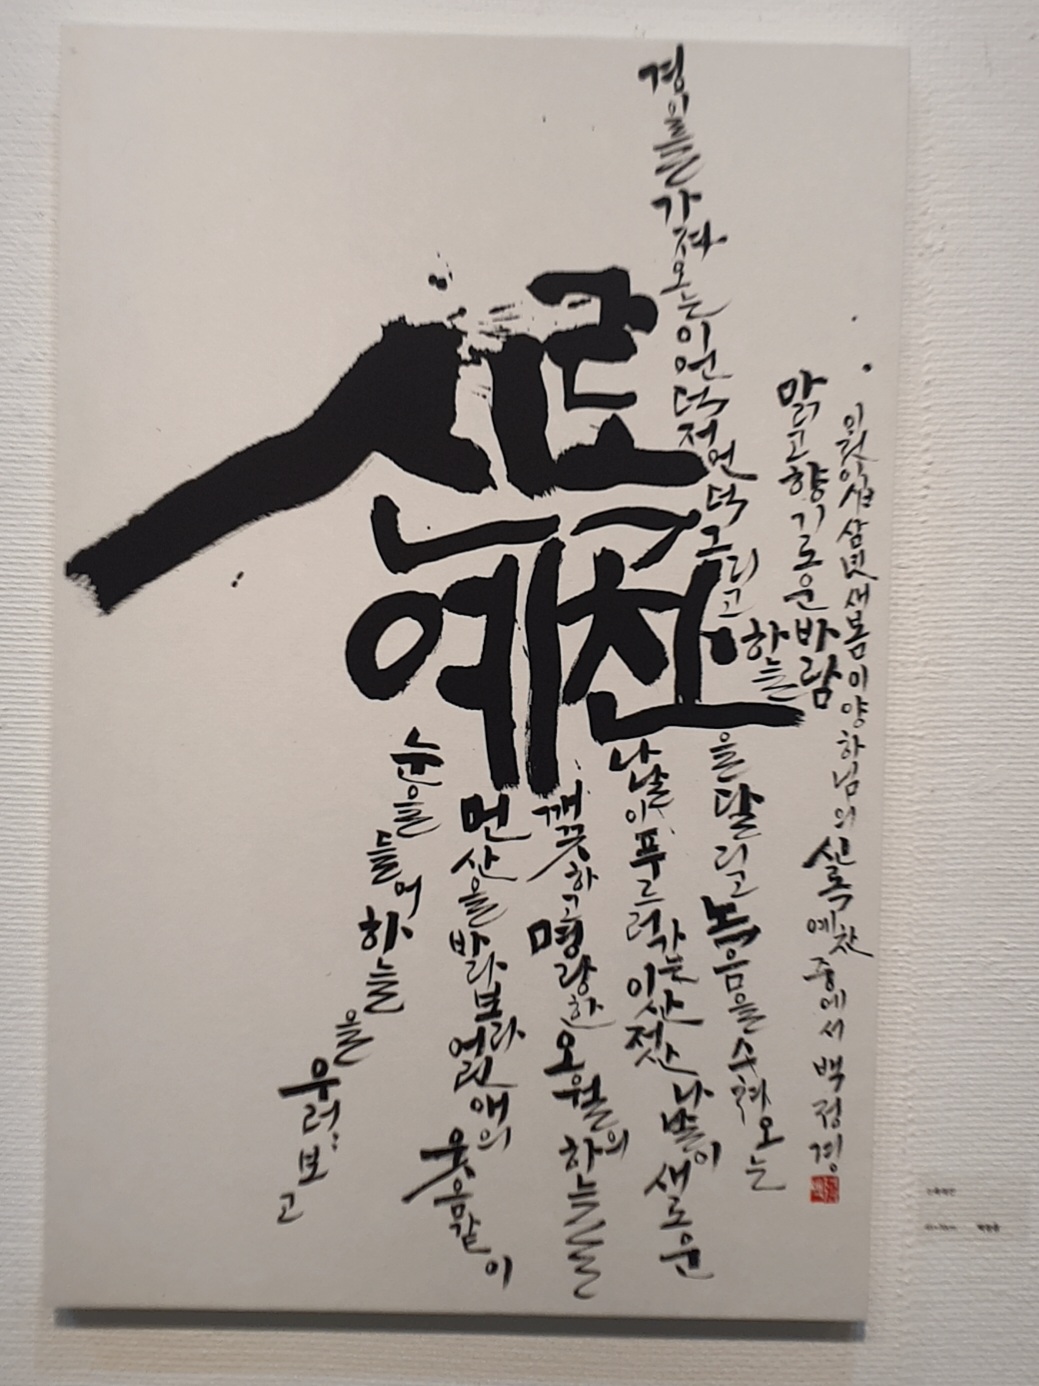 신록
예찬
눈을 들어 하늘을 우러러보고
먼 산을 바라보라 어린애의 웃음같이
깨끗하고 명랑한 오월의 하늘
나날이 푸르러가는 이산 저산 나날이 새로운
경이를 가져오는 이언덕 저언덕 그리고 하늘
을 달리고 녹음을 스쳐오는
맑고 향기로운 바람
새봄 이양하님의 신록예찬 중에서 백정경